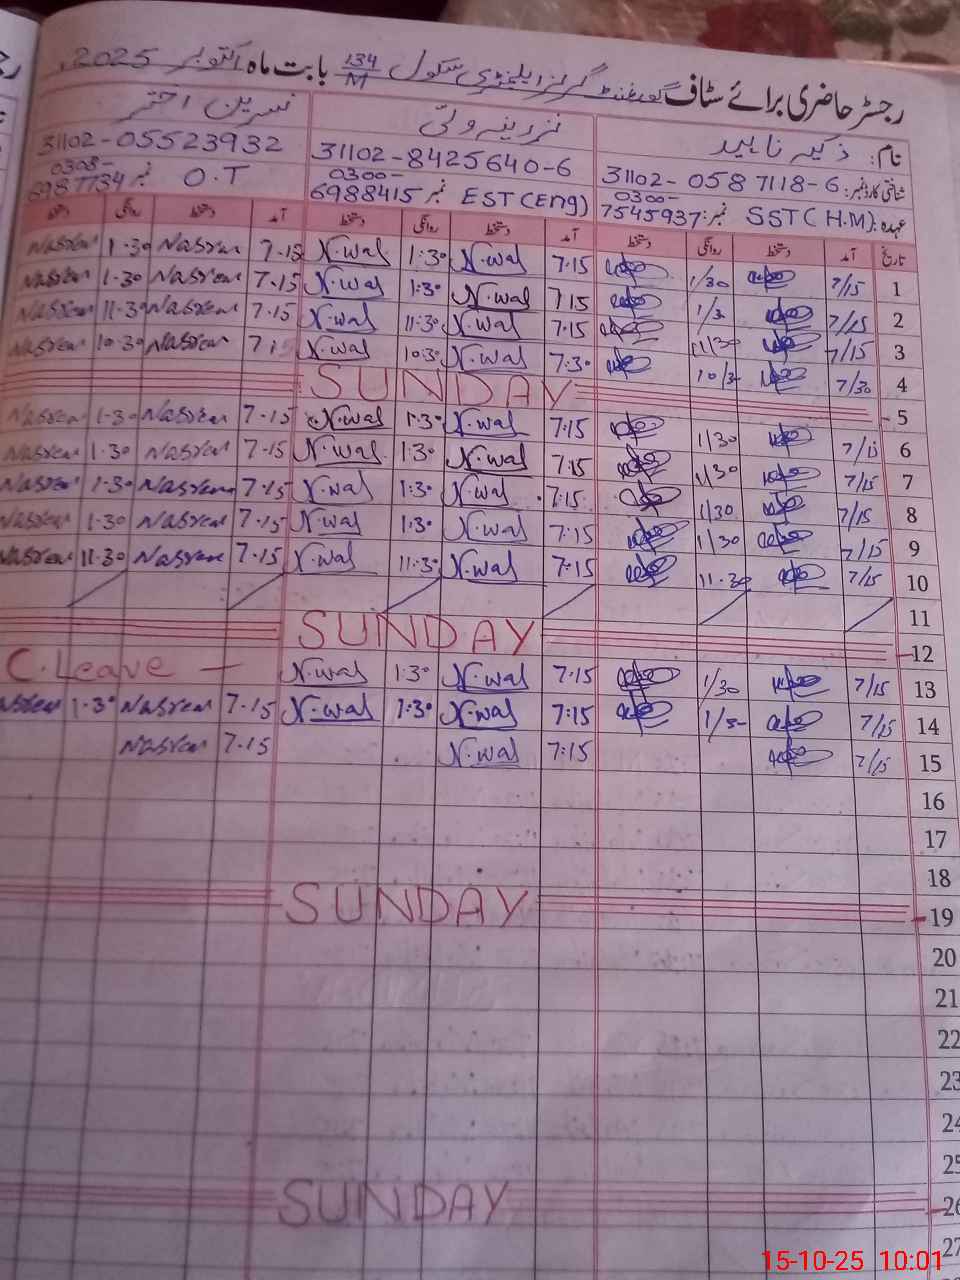 رجسٹر حاضری برائے سٹاف گورنمنٹ گرلز ایلیمنٹری سکول 134/M بابت ماہ اکتوبر 2025ء
نام: ذکیہ ناہید نسرین اختر
شناختی کارڈ نمبر: 31102-0587118-6 31102-8425640-6 31102-05523932
عہدہ: SST (H.M) نمبر: 0300-7545937 EST (Eng) نمبر 0300-6988415 O.T نمبر 0308-6987734
تاریخ آمد دستخط روانگی دستخط آمد دستخط روانگی دستخط آمد دستخط روانگی دستخط
1 7/15 1/30 7.15 N.wal 1:30 N.wal 7.15 Nasreen 1.30 Nasreen
2 7/15 1/30 7.15 N.wal 1:30 N.wal 7.15 Nasreen 1.30 Nasreen
3 7/15 11/30 7.15 N.wal 11:30 N.wal 7.15 Nasreen 11.30 Nasreen
4 7/30 10/30 7:30 N.wal 10:30 N.wal 7.15 Nasreen 10.30 Nasreen
5 SUNDAY
6 7/15 1/30 7.15 N.wal 1:30 N.wal 7.15 Nasreen 1.30 Nasreen
7 7/15 1/30 7.15 N.wal 1:30 N.wal 7.15 Nasreen 1.30 Nasreen
8 7/15 1/30 7:15 N.wal 1:30 N.wal 7.15 Nasreen 1.30 Nasreen
9 7/15 1/30 7:15 N.wal 1:30 N.wal 7.15 Nasreen 1.30 Nasreen
10 7/15 11.30 7:15 N.wal 11:30 N.wal 7.15 Nasreen 11.30 Nasreen
11
12 SUNDAY
13 7/15 1/30 7:15 N.wal 1:30 N.wal C.Leave
14 7/15 1/30 7:15 N.wal 1:30 N.wal 7.15 Nasreen 1.30 Nasreen
15 7/15 7:15 N.wal 7.15 Nasreen
16
17
18
19 SUNDAY
20
21
22
23
24
25
26 SUNDAY
27
15-10-25 10:01